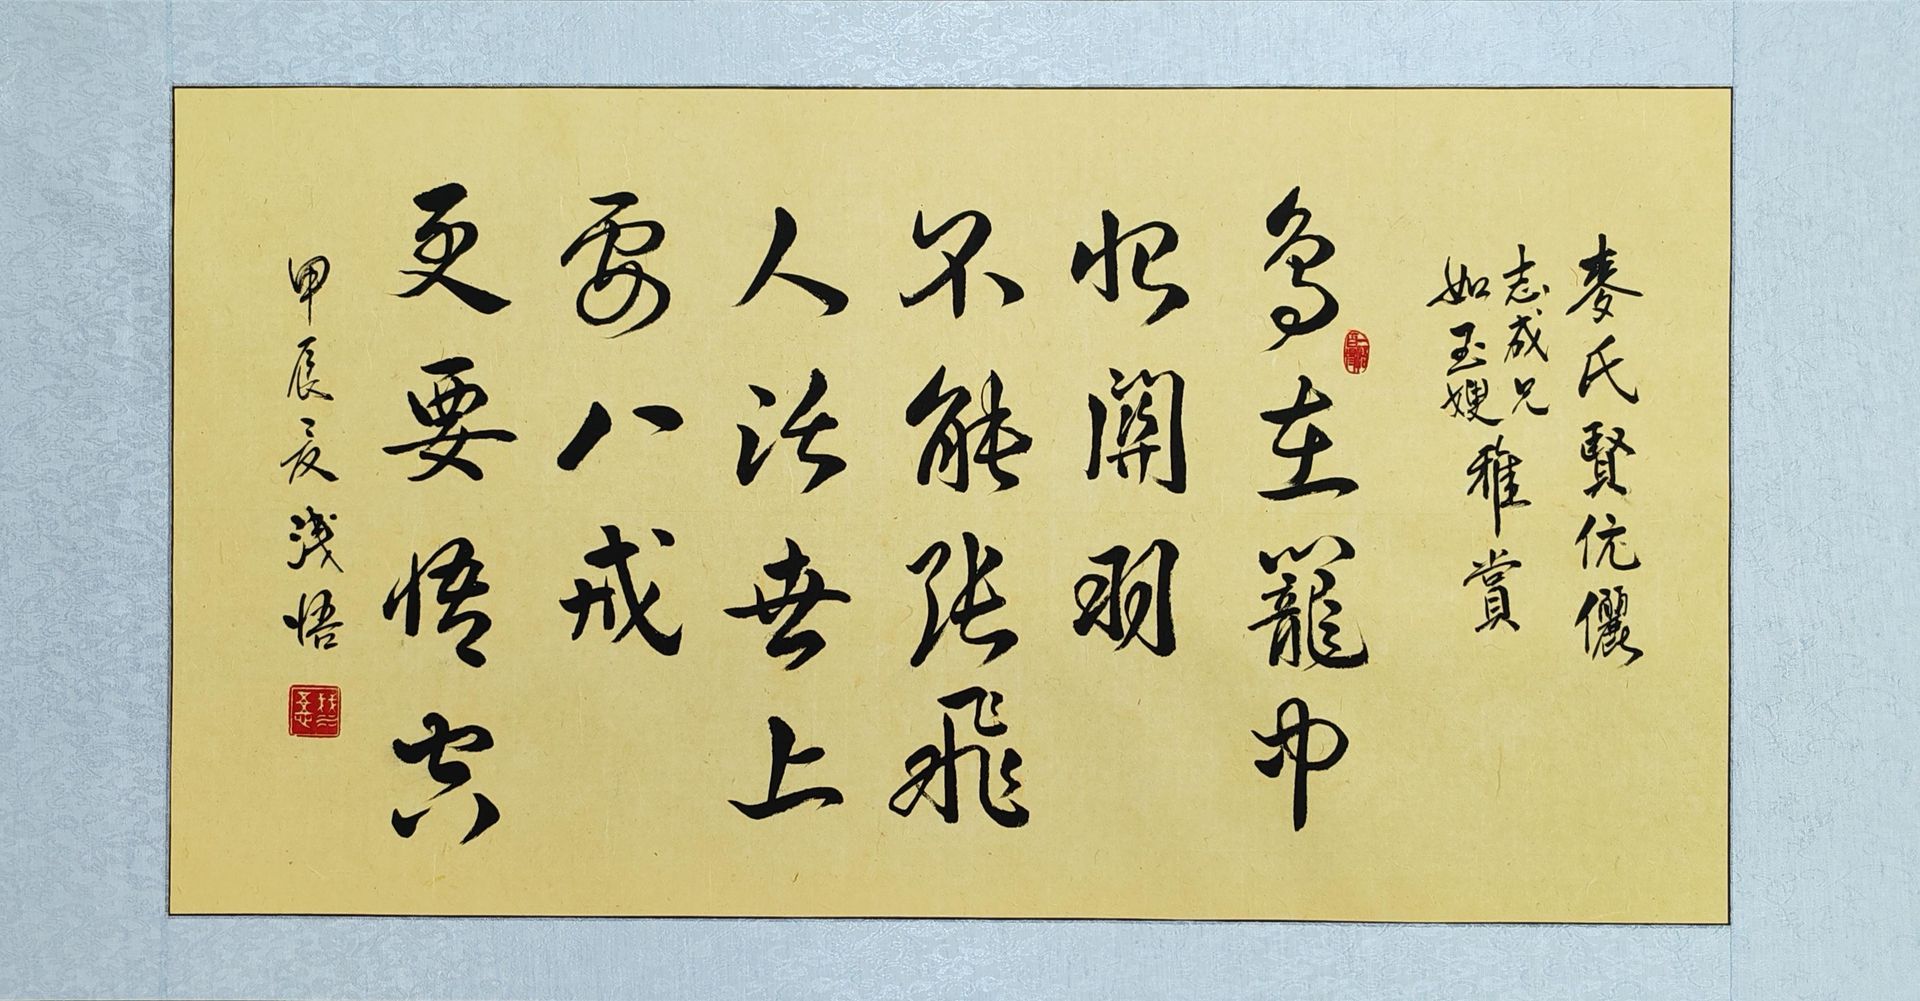 麥氏賢伉儷
志成兄
如玉嫂
雅賞
鳥在籠中
恨關羽
不能張飛
人活世上
要八戒
更要悟空
甲辰夏淺悟